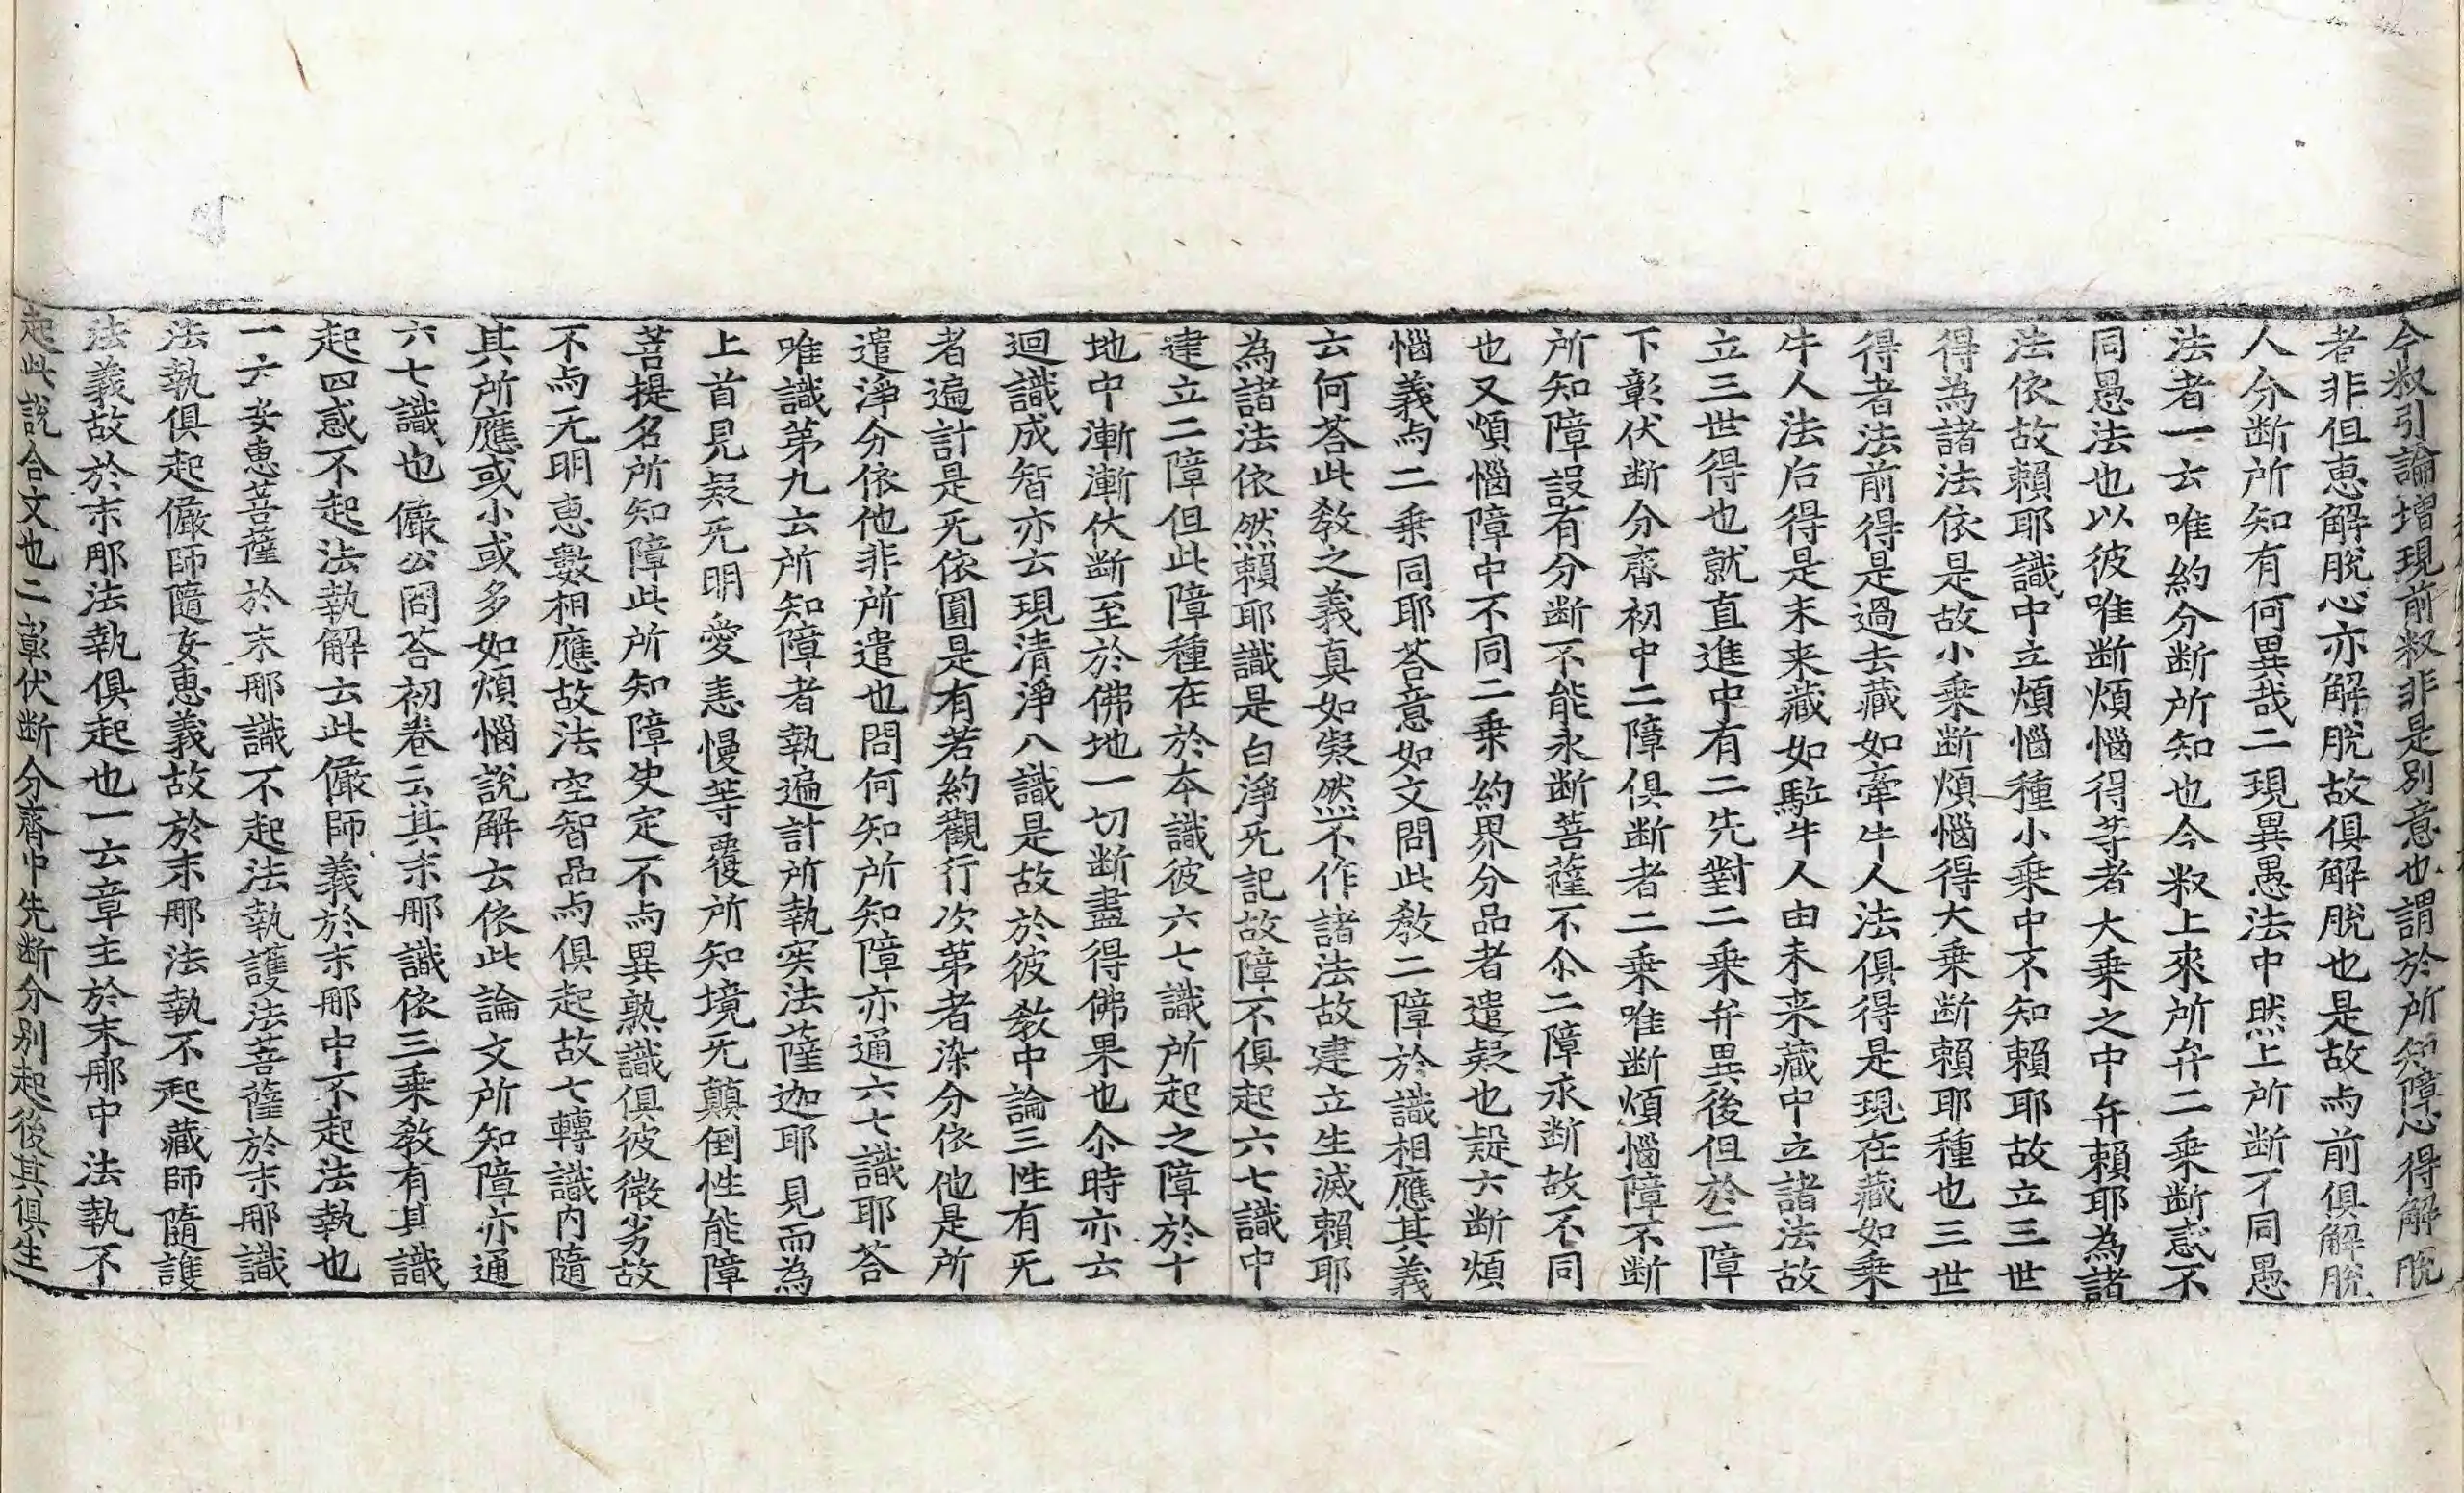 今釈引論増現前釈非是別意也謂於所知障心得解脱
者非但恵解脱心亦解脱故俱解脱也是故与前俱解脱
人分断所知有何異哉二現異愚法中然上所断不同愚
法者一云唯約分断所知也今釈上來所弁二乗断惑不
同愚法也以彼唯断煩惱得等者大乗之中弁賴耶為諸
法依故賴耶識中立煩惱種小乗中不知賴耶故立三世
得為諸法依是故小乗断煩惱得大乗断賴耶種也三世
得者法前得是過去藏如牽牛人法俱得是現在藏如乗
牛人法后得是未来藏如駈牛人由未来藏中立諸法故
立三世得也就直進中有二先對二乗弁異後但於二障
下彰伏断分齊初中二障俱断者二乗唯断煩惱障不断
所知障設有分断不能永断菩薩不尒二障永断故不同
也又煩惱障中不同二乗約界分品者遣疑也疑六断煩
惱義与二乗同耶荅意如文問此教二障於識相應其義
云何荅此教之義真如凝然不作諸法故建立生滅賴耶
為諸法依然賴耶識是白淨旡記故障不俱起六七識中
建立二障但此障種在於本識彼六七識所起之障於十
地中漸漸伏断至於佛地一切断盡得佛果也尒時亦云
迴識成智亦云現清淨八識是故於彼教中論三性有旡
者遍計是旡依圓是有若約觀行次第者染分依他是所
遣淨分依他非所遣也問何知所知障亦通六七識耶荅
唯識第九云所知障者執遍計所執实法薩迦耶見而為
上首見疑旡明愛恚慢等覆所知境旡顛倒性能障
菩提名所知障此所知障决定不与異熟識俱彼微劣故
不与无明恵數相應故法空智品与俱起故七轉識内隨
其所應或小或多如煩惱説解云依此論文所知障亦通
六七識也儼公問荅初卷云其末那識依三乗教有其識
起四惑不起法執解云此儼師義於末那中不起法執也
一六安恵菩薩於末那識不起法執護法菩薩於末那識
法執俱起儼師隨安恵義故於末那法執不起藏師隨護
法義故於末那法執俱起也一云章主於末那中法執不
起此説合文也二彰伏断分齊中先断分别起後其俱生